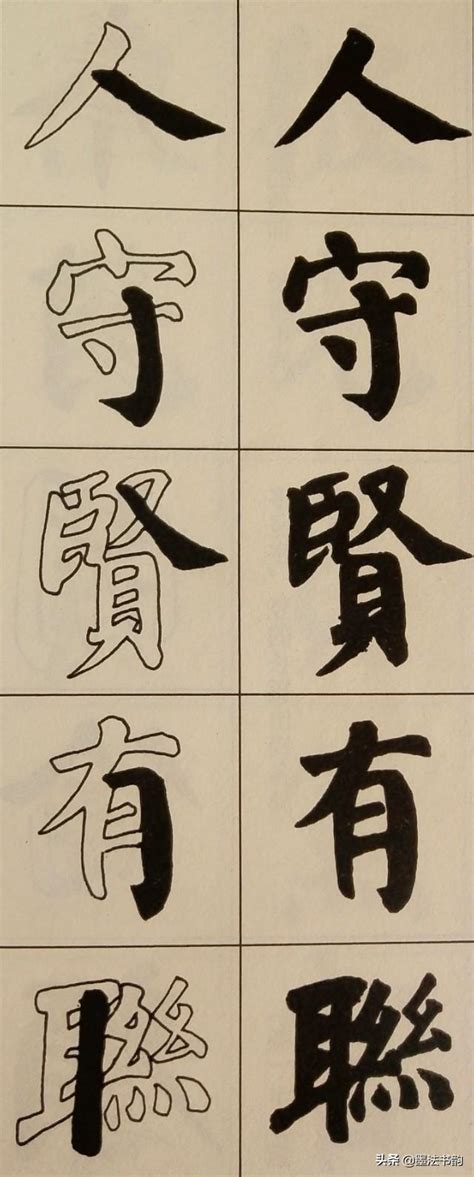 人 人
守 守
賢 賢
有 有
聯 聯
头条 @墨法书韵